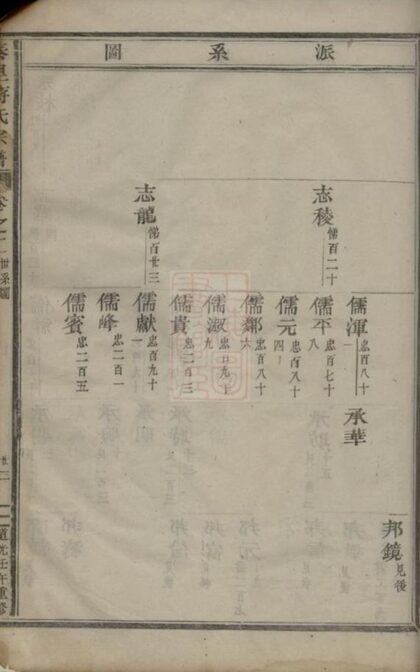 派系圖
志稜 悌百二十
志龍 悌百廿三
儒渾 忠百八十一
儒平 忠百七十八
儒元 忠百八十四
儒鄰 忠百八十六
儒淑 忠百九十九
儒貴 忠二百三
儒獻 忠百九十一
儒峰 忠二百一
儒賓 忠二百五
承華
邦鏡 見後
氏宗譜
卷之
世系圖
道光壬午重修